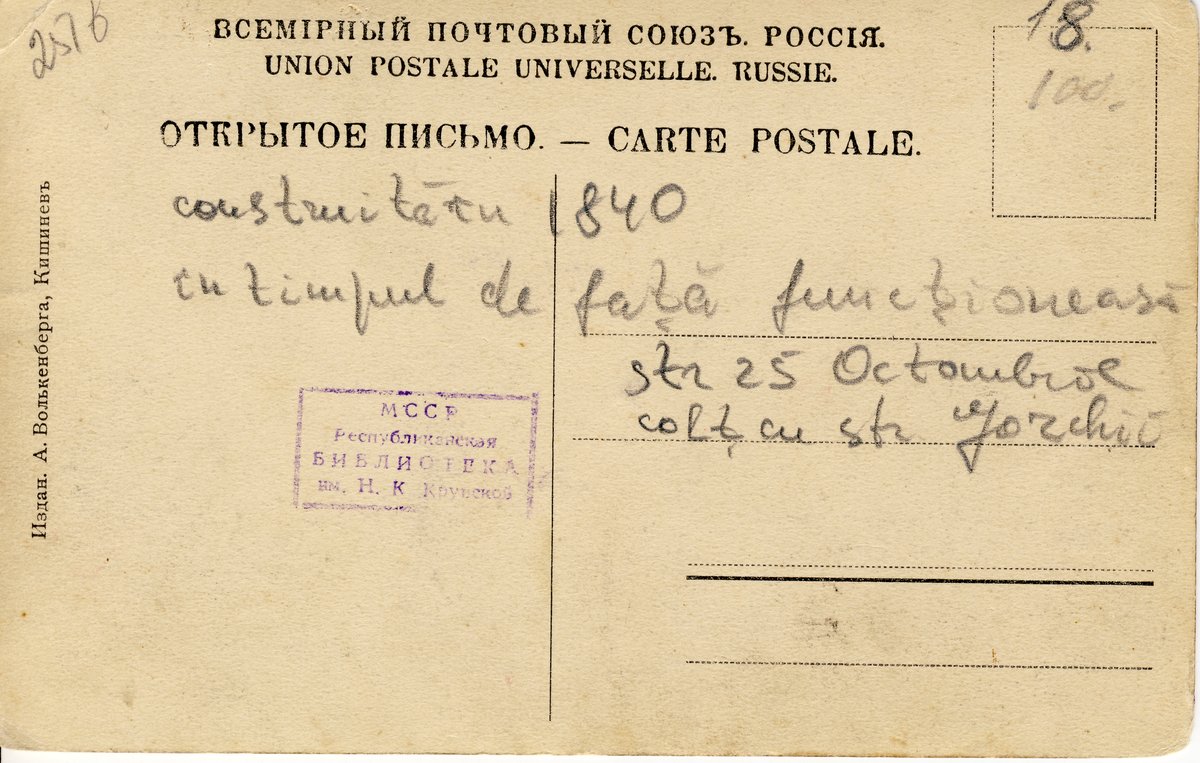 257 б
18.
100.
ВСЕМІРНЫЙ ПОЧТОВЫЙ СОЮЗЪ. РОССІЯ.
UNION POSTALE UNIVERSELLE. RUSSIE.
ОТКРЫТОЕ ПИСЬМО. — CARTE POSTALE.
construită în 1840
în timpul de față funcționează
str 25 Octombrie
colț cu str Gorchii
МССР
Республиканская
БИБЛИОТЕКА
им. Н. К. Крупской
Издан. А. Волькенберга, Кишиневъ